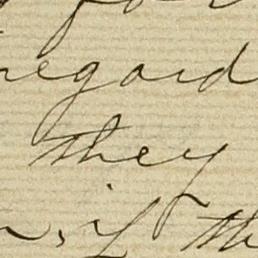 regard
they
if th